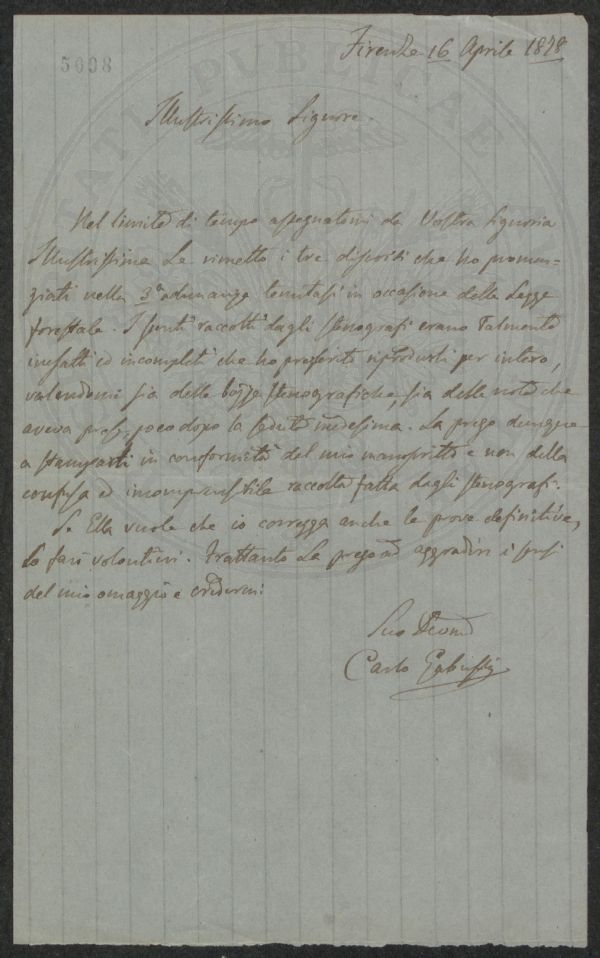 5098
Firenze 16 Aprile 1878
Illustrissimo Signore.
Nel limite di tempo assegnatomi da Vostra Signoria
Illustrissima Le rimetto i tre discorsi che ho pronun-
ziati nella 3a adunanza tenutasi in occasione della Legge
forestale. I sunti raccolti dagli stenografi erano talmente
inesatti ed incompleti che ho preferito riprodurli per intero,
valendomi sia delle bozze stenografiche, sia delle note che
aveva prese poco dopo la seduta medesima. La prego dunque
a stamparli in conformità del mio manoscritto e non della
confusa ed incomprensibile raccolta fatta dagli stenografi.
Se Ella vuole che io corregga anche le prove definitive,
lo farò volontieri. Frattanto La prego ad aggradire i sensi
del mio omaggio e credermi
Suo
Carlo